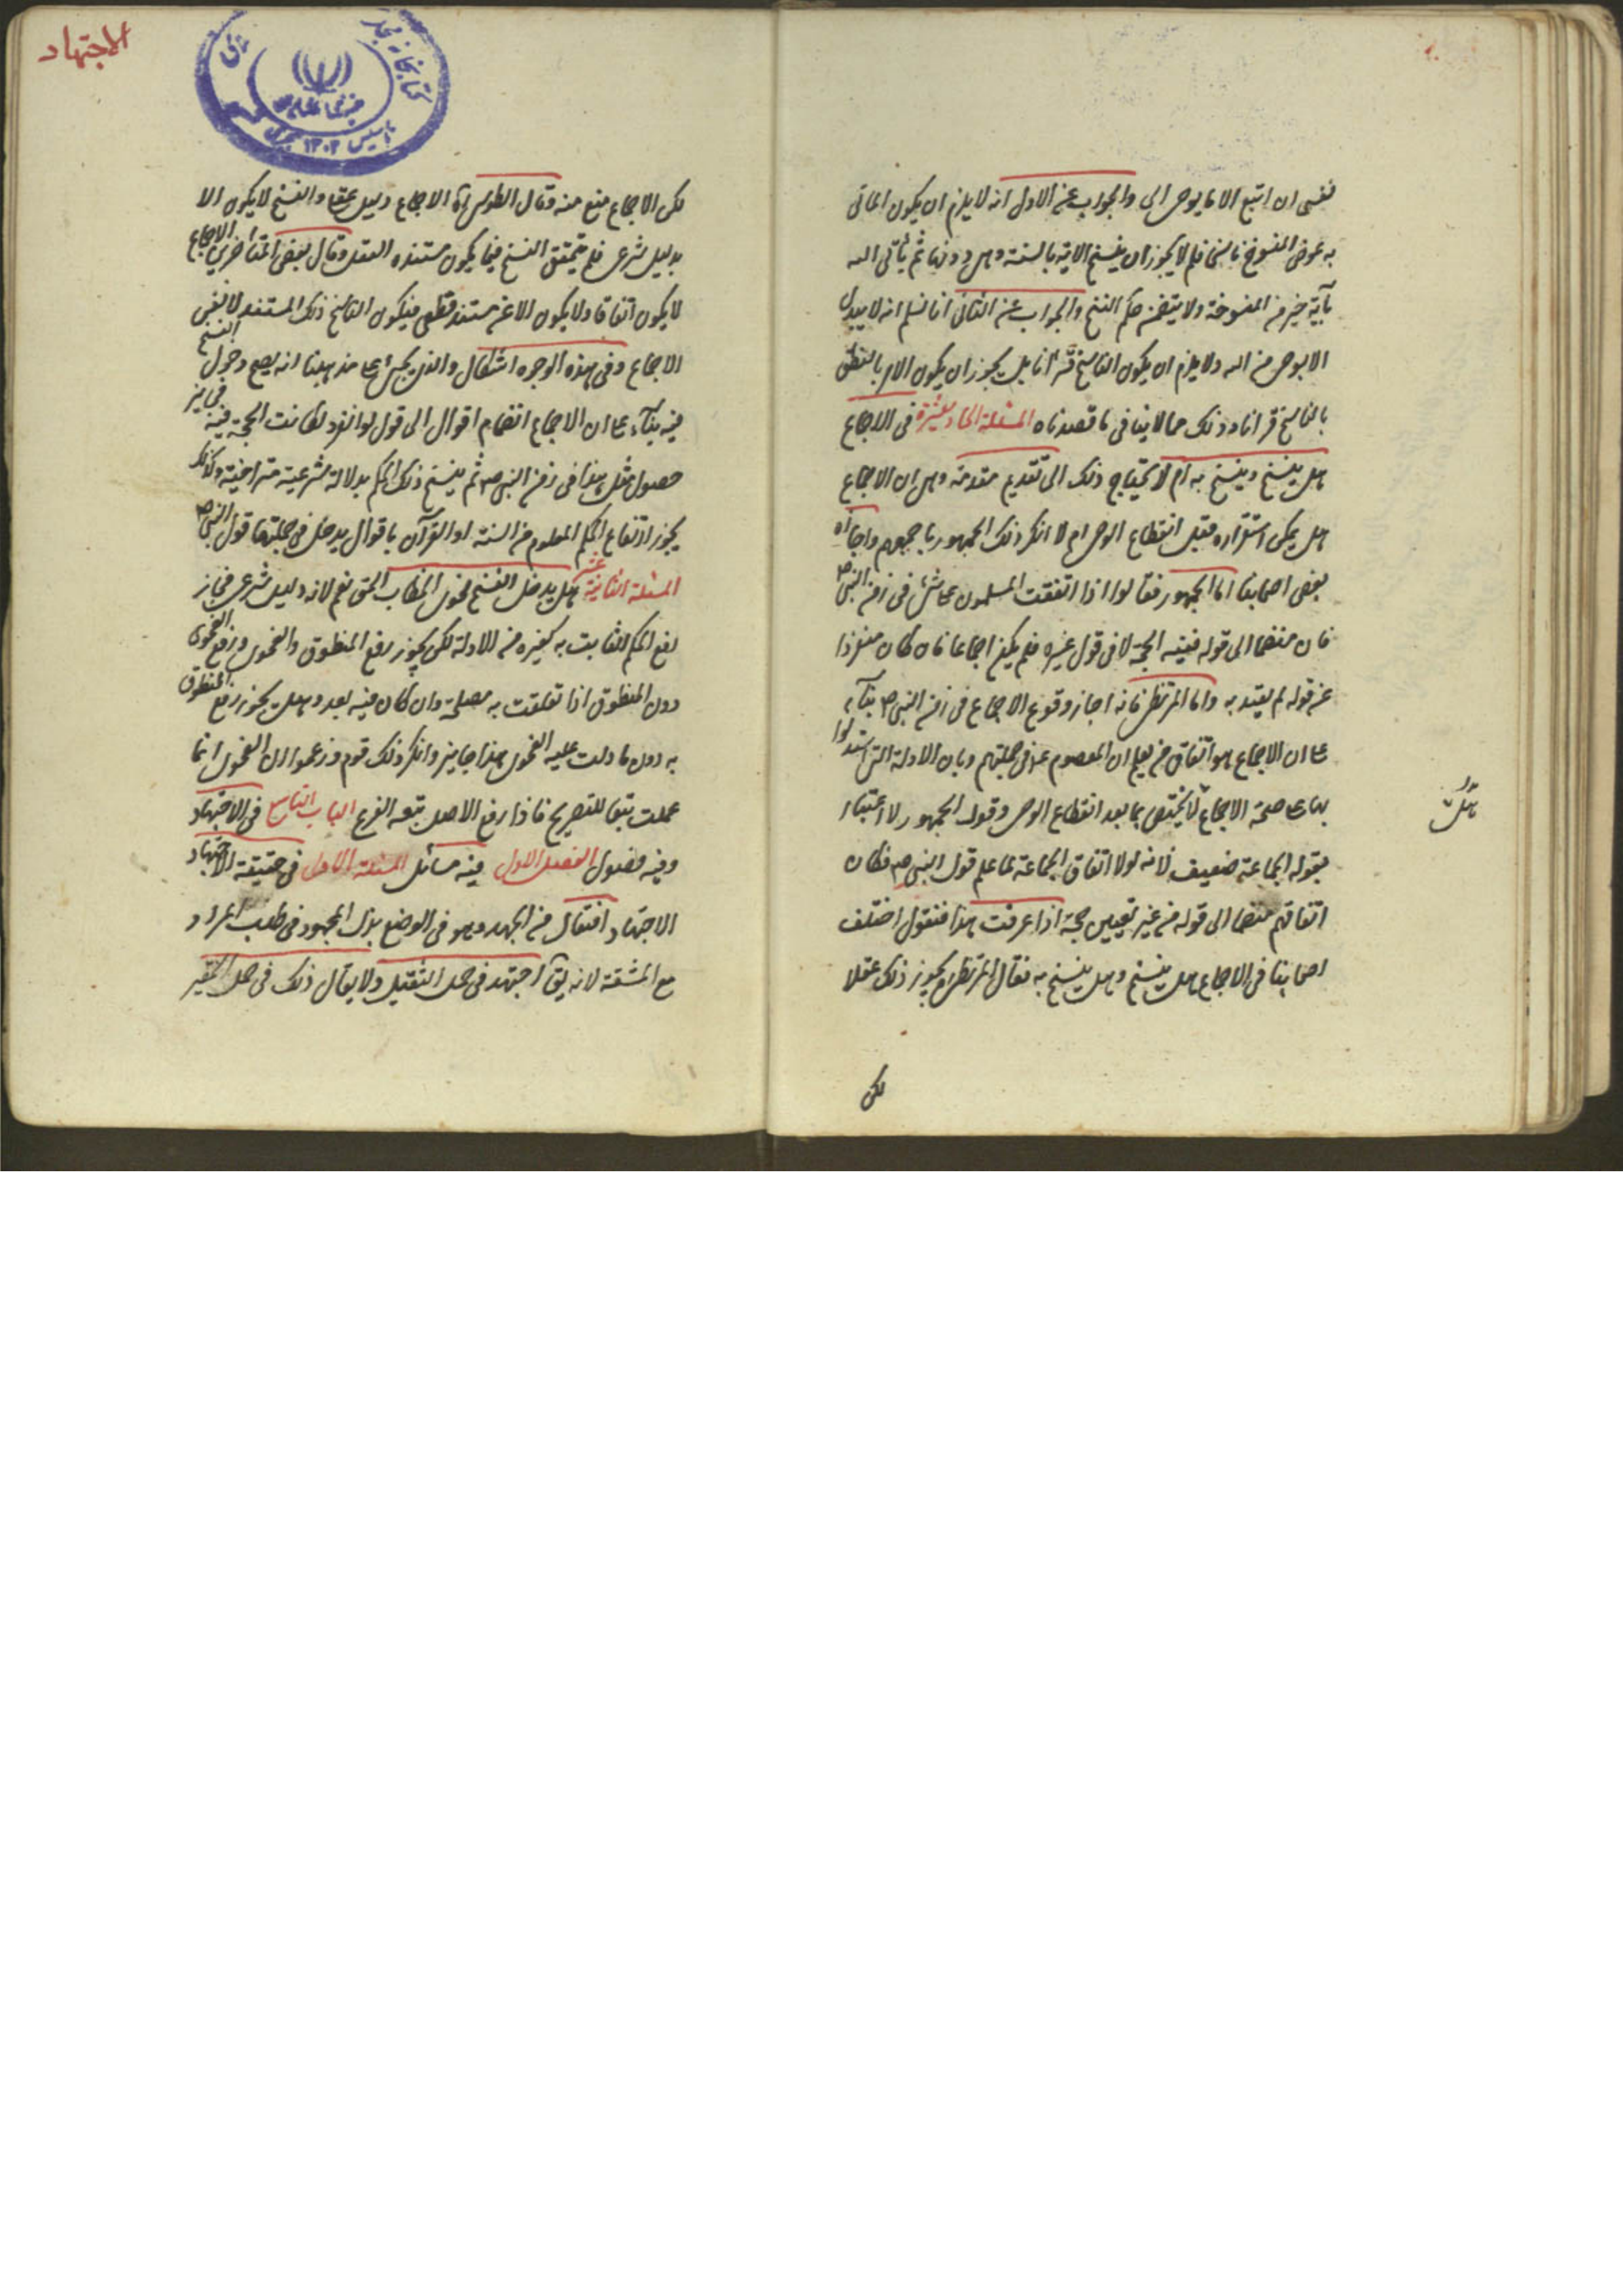 نفسى ان اتبع الا ما يوحى الى والجواب عن الاول انه لا يلزم ان يكون الماتى
به عوض المنسوخ ناسخا فلم لا يجوز ان ينسخ الاية بالسنة وهى دونها ثم يأتى الله
بآية خير من المنسوخة ولا يتضمن حكم النسخ والجواب عن الثانى انا نسلم انه لا يبدل
الا بوحى من الله ولا يلزم ان يكون الناسخ قرآنا بل يجوز ان يكون الامر بالنطق
بالناسخ قرانا وذلك مما لا ينافى ما قصدناه المسئلة الحاديعشرة فى الاجماع
هل ينسخ وينسخ به ام لا يحتاج ذلك الى تقديم مقدمة وهى ان الاجماع
هل يمكن استقراره قبل انقطاع الوحى ام لا انكر ذلك الجمهور باجمعهم واجازه
بعض اصحابنا اما الجمهور فقالوا اذا اتفقت المسلمون على شئ فى زمن النبى ص
فان منضما الى قوله ففيه الحجة لا فى قول غيره فلم يكن اجماعا فان كان منفردا
عن قوله لم يعتد به واما المرتضى فانه اجاز وقوع الاجماع فى زمن النبى ص بناء
على ان الاجماع هو اتفاق من يعلم ان المعصوم ع فى جملتهم وبان الادلة التى استدلوا
بها على صحة الاجماع لا يختص بما بعد انقطاع الوحى وقول الجمهور لا اعتبار
بقول الجماعة ضعيف لانه لولا اتفاق الجماعة لما علم قول النبى ص فكان
اتفاقهم منضما الى قوله من غير تعيين حجة اذا عرفت هذا فنقول اختلف
اصحابنا فى الاجماع هل ينسخ وهل ينسخ به فقال المرتضى يجوز ذلك عقلا
لكن
الاجتهاد
لكن الاجماع منع منه وقال الطوسى ره الاجماع دليل عقلى والنسخ لا يكون الا
بدليل شرعى فلم يتحقق النسخ فيما يكون مستنده العقل وقال بعض المتأخرين الاجماع
لا يكون اتفاقا ولا يكون الا عن مستند قطعى فيكون الناسخ ذلك المستند لا نفس
الاجماع وفى هذه الوجوه اشكال والذى يجئ على مذهبنا انه يصح دخول النسخ
فيه بناء على ان الاجماع انضمام اقوال الى قول لو انفرد لكانت الحجة فيه فجايز
حصول مثل هذا فى زمن النبى ص ثم ينسخ ذلك الحكم بدلالة شرعية متراخية وكذلك
يجوز ارتفاع الحكم المعلوم من السنة او القرآن باقوال يدخل فى جملتها قول النبى ص
المسئلة الثانية عشر هل يدخل النسخ فحوى الخطاب الحق نعم لانه دليل شرعى فجاز
رفع الحكم الثابت به كغيره من الادلة لكن يجوز رفع المنطوق والفحوى ورفع الفحوى
دون المنطوق اذا تعلقت به مصلحة وان كان فيه بعد وهل يجوز رفع المنطوق
به دون ما دلت عليه الفحوى هذا جايز وانكر ذلك قوم وزعموا ان الفحوى انما
عملت تبعا للتصريح فاذا رفع الاصل تبعه الفرع الباب التاسع فى الاجتهاد
وفيه فصول الفصل الاول فيه مسائل المسئلة الاولى فى حقيقة الاجتهاد
الاجتهاد افتعال من الجهد وهو فى الوضع بذل المجهود فى طلب المراد
مع المشقة لانه يق اجتهد فى حمل الثقيل ولا يقال ذلك فى حمل الحقير